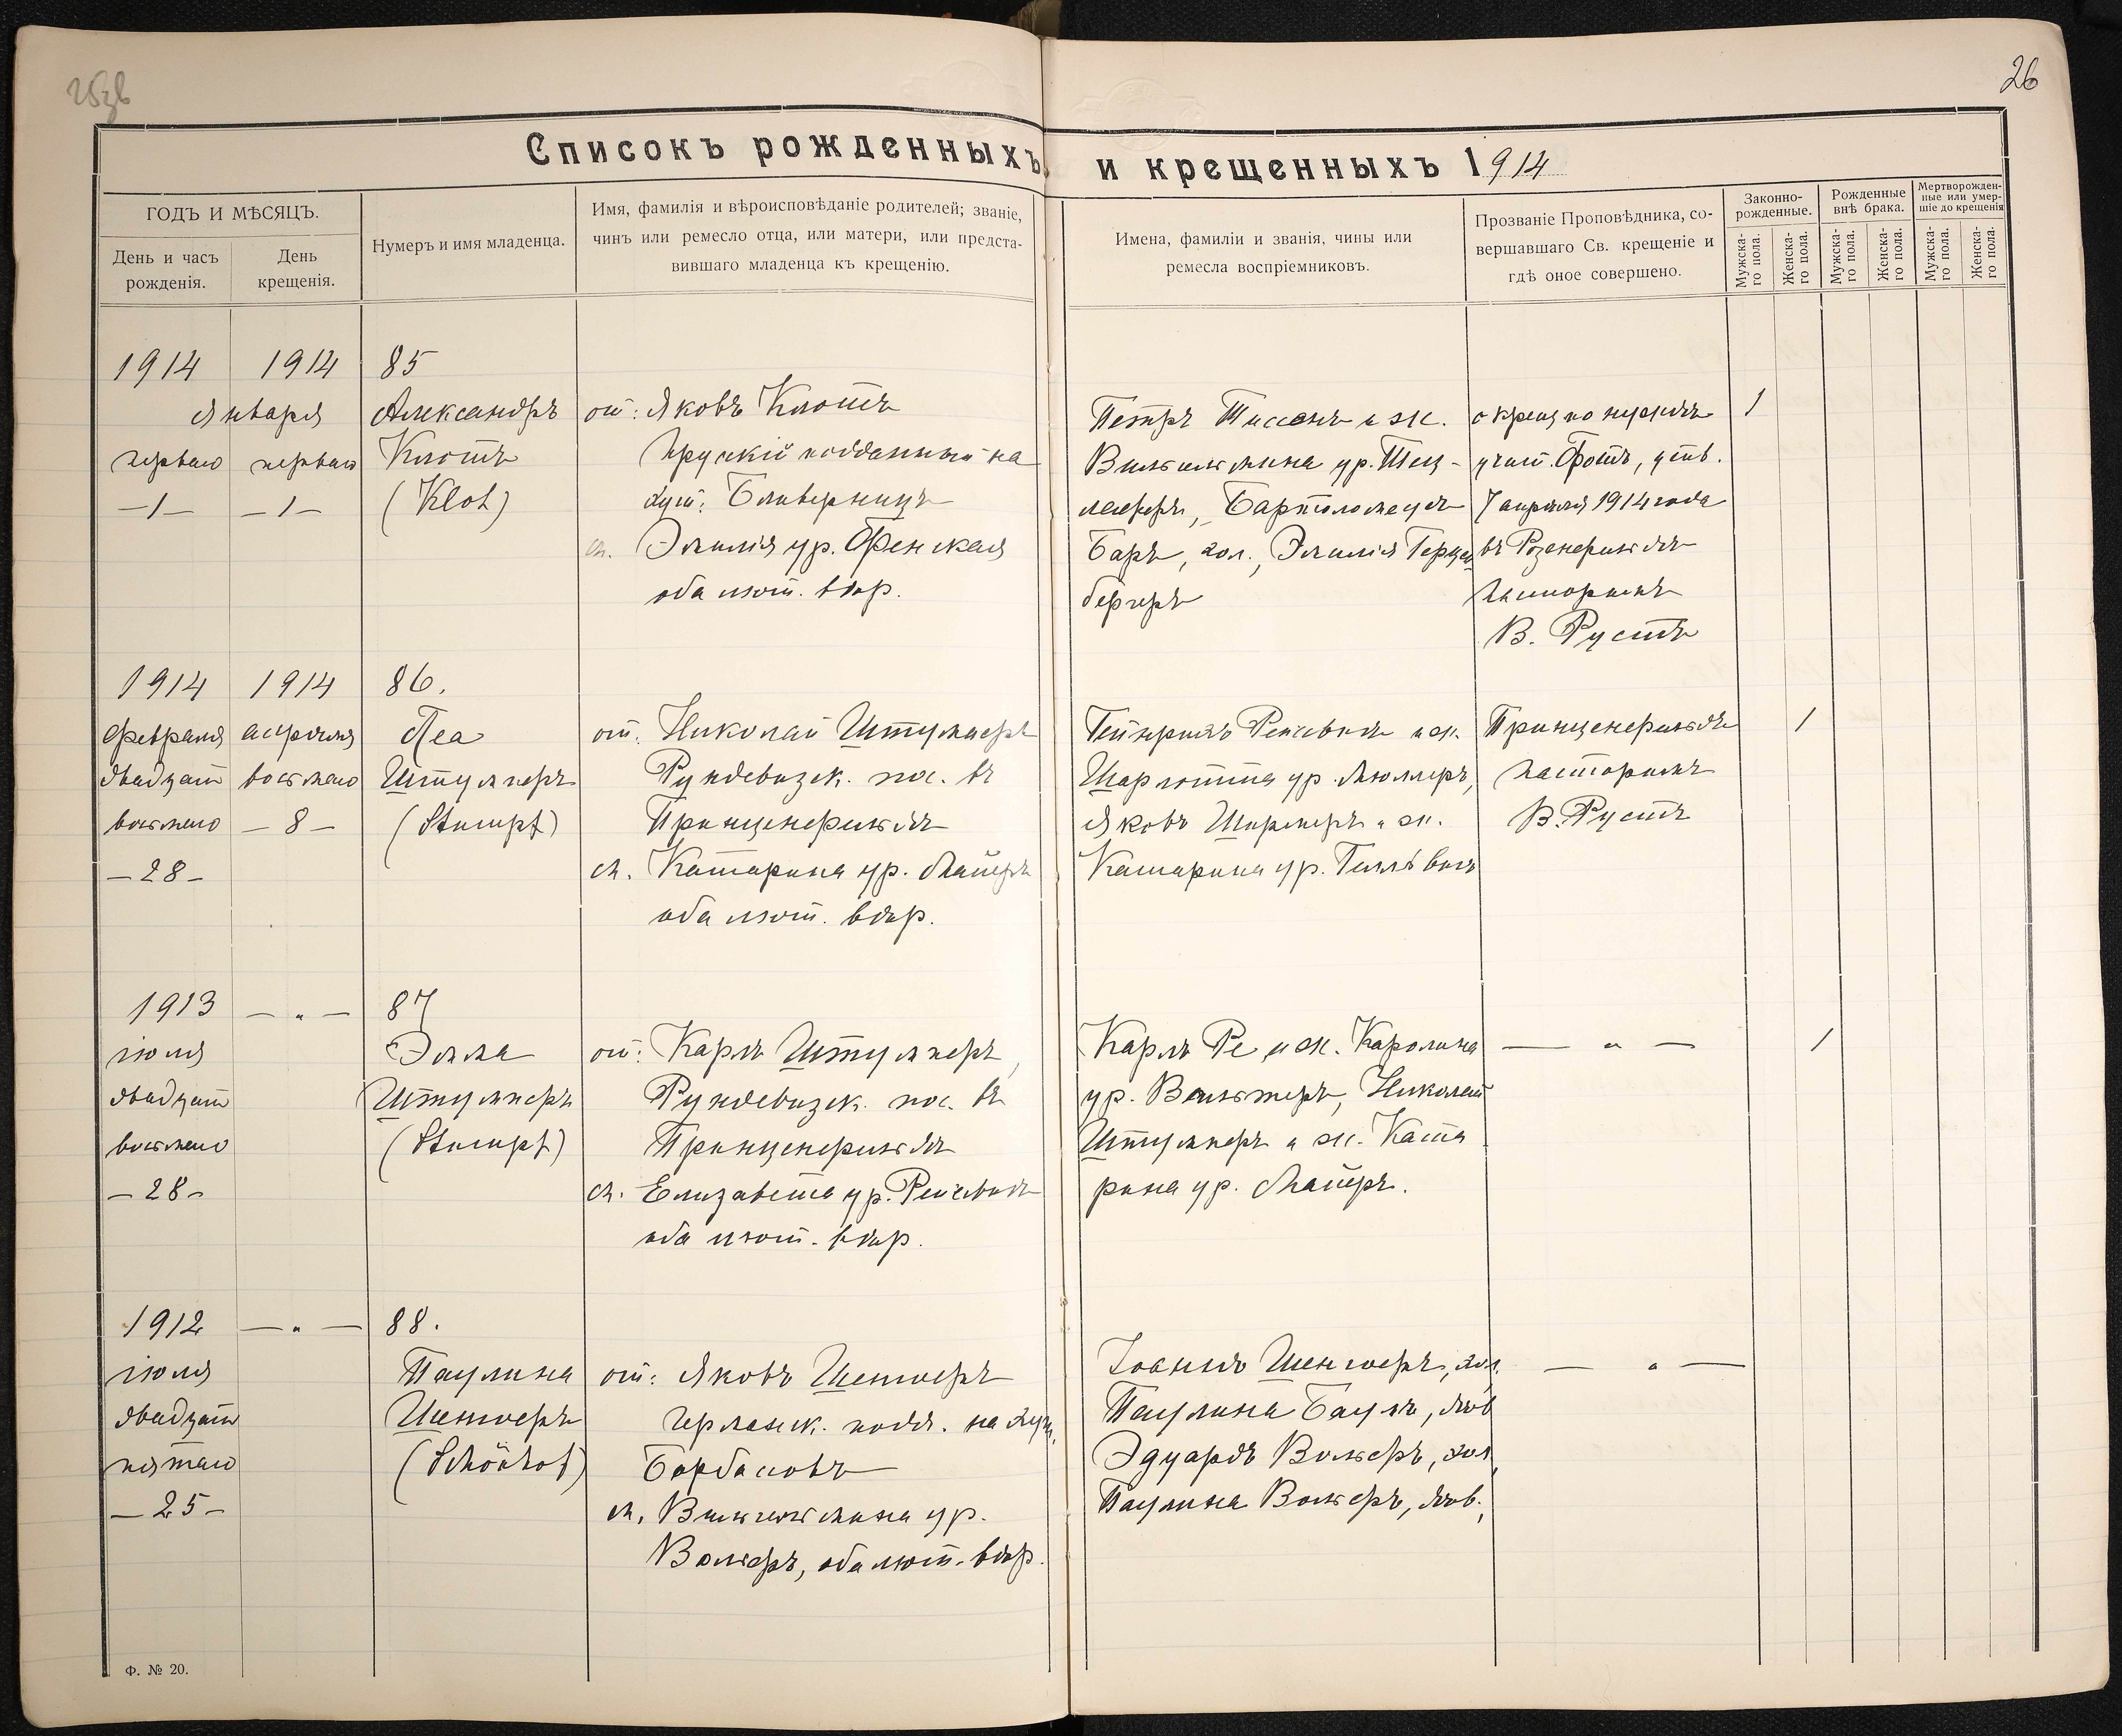 26
Списокъ рожденныхъ и крещенныхъ 1914
ГОДЪ И МѢСЯЦЪ.
День и часъ
рожденія.
День
крещенія.
Нумеръ и имя младенца.
Имя, фамилія и вѣроисповѣданіе родителей; званіе,
чинъ или ремесло отца, или матери, или предста-
вившаго младенца къ крещенію.
Имена, фамиліи и званія, чины или
ремесла воспріемниковъ.
Прозваніе Проповѣдника, со-
вершавшаго Св. крещеніе и
гдѣ оное совершено.
Законно-
рожденные.
Рожденные
внѣ брака.
Мертворожден-
ные или умер-
шіе до крещенія
Мужска-
го пола.
Женска-
го пола.
Мужска-
го пола.
Женска-
го пола.
Мужска-
го пола.
Женска-
го пола.
1914
января
перваго
—1—
1914
перваго
—1—
85
Александръ
Клотъ
(Klot)
от: Яковъ Клотъ
прускій подданный на
хут:
м. Эмилія ур. Фенская
оба лют. вѣр.
Петръ Тиссенъ и ж.
Вильгельмина ур.
Бартоломеусъ
Баръ, хол., Эмилія Герцен
бергеръ
о крещ по нуждѣ
учит. Фотъ, утв.
7 апрѣля 1914 года
въ Розенфельдѣ
пасторомъ
В. Рустъ
1
1914
февраля
двадцат
восьмаго
—28—
1914
апрѣля
восьмаго
—8—
86.
Леа
Штумперъ
(Stumpf)
от. Николай Штумперъ
Рундевизск. пос. въ
Принценфельдѣ
м. Катарина ур. Майеръ
оба лют. вѣр.
Гейнрихъ и ж.
Шарлотта ур. Мюллеръ,
Яковъ Ширмеръ и ж.
Катарина ур.
Принценфельдѣ
пасторомъ
В. Рустъ
1
1913
іюля
двадцат
восьмаго
—28—
— „ —
87
Эмма
Штумперъ
(Stumpf)
от: Карлъ Штумперъ,
Рундевизск. пос. въ
Принценфельдѣ
м. Елизавета ур.
оба лют. вѣр.
Карлъ Ре и ж. Каролина
ур. Вальтеръ, Николай
Штумперъ и ж. Ката
рина ур. Майеръ.
— „ —
1
1912
іюля
двадцат
пятаго
—25—
— „ —
88.
Паулина
Шенгоеръ
(Schönhof)
от: Яковъ Шенгоеръ
германск. подд. на хут.
Борбасовъ
м. Вильгельмина ур.
Вольфъ, оба лют. вѣр.
Іоаннъ Шенгоеръ, хол.
Паулина Баумъ, дѣв
Эдуардъ Вольфъ, хол,
Паулина Вольфъ, дѣв.,
— „ —
Ф. № 20.